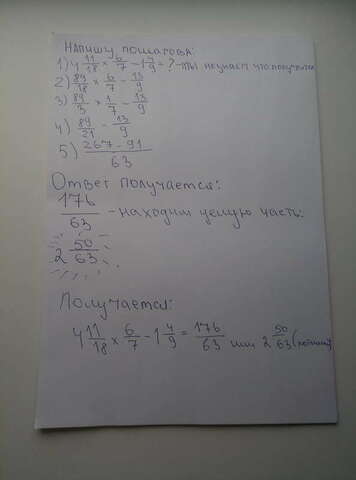 Напишу пошагово:
1) 4 11/18 × 6/7 - 1 4/9 = ? - мы не знаем что получится
2) 89/18 × 6/7 - 13/9
3) 89/3 × 1/7 - 13/9
4) 89/21 - 13/9
5) 267 - 91/63
Ответ получается:
176/63 - находим целую часть:
2 50/63.
Получается:
4 11/18 × 6/7 - 1 4/9 = 176/63 или 2 50/63